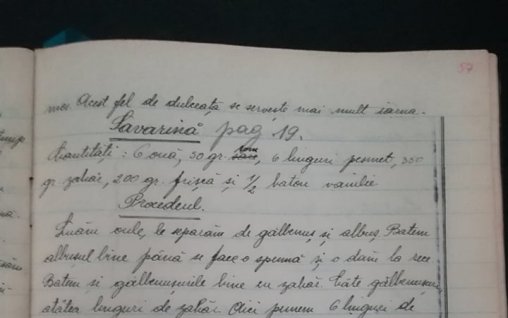 57
mos. Acest fel de dulceață se servește mai mult iarna.
Savarină pag 19.
Cantități: 6 ouă, 50 gr. rom, 6 linguri pesmet, 350
gr. zahăr, 200 gr. frișcă și 1/2 baton vanilie
Procedeul.
Luăm ouăle, le separăm de gălbenuș și albuș. Batem
albușul bine până se face o spumă și o dăm la rece
Batem și gălbenușurile bine cu zahăr. Câte gălbenușuri
atâtea linguri de zahăr. Aici punem 6 linguri de